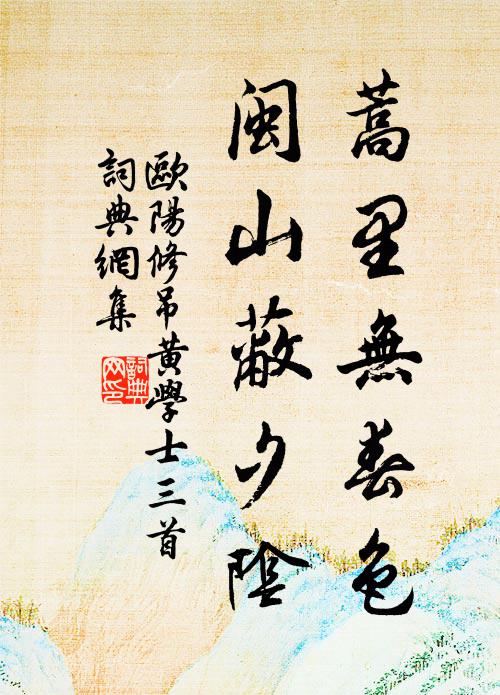 蒿里無春色
閩山蔽夕陰
歐陽修吊黃學士三首
詞典網集
詞典
网印